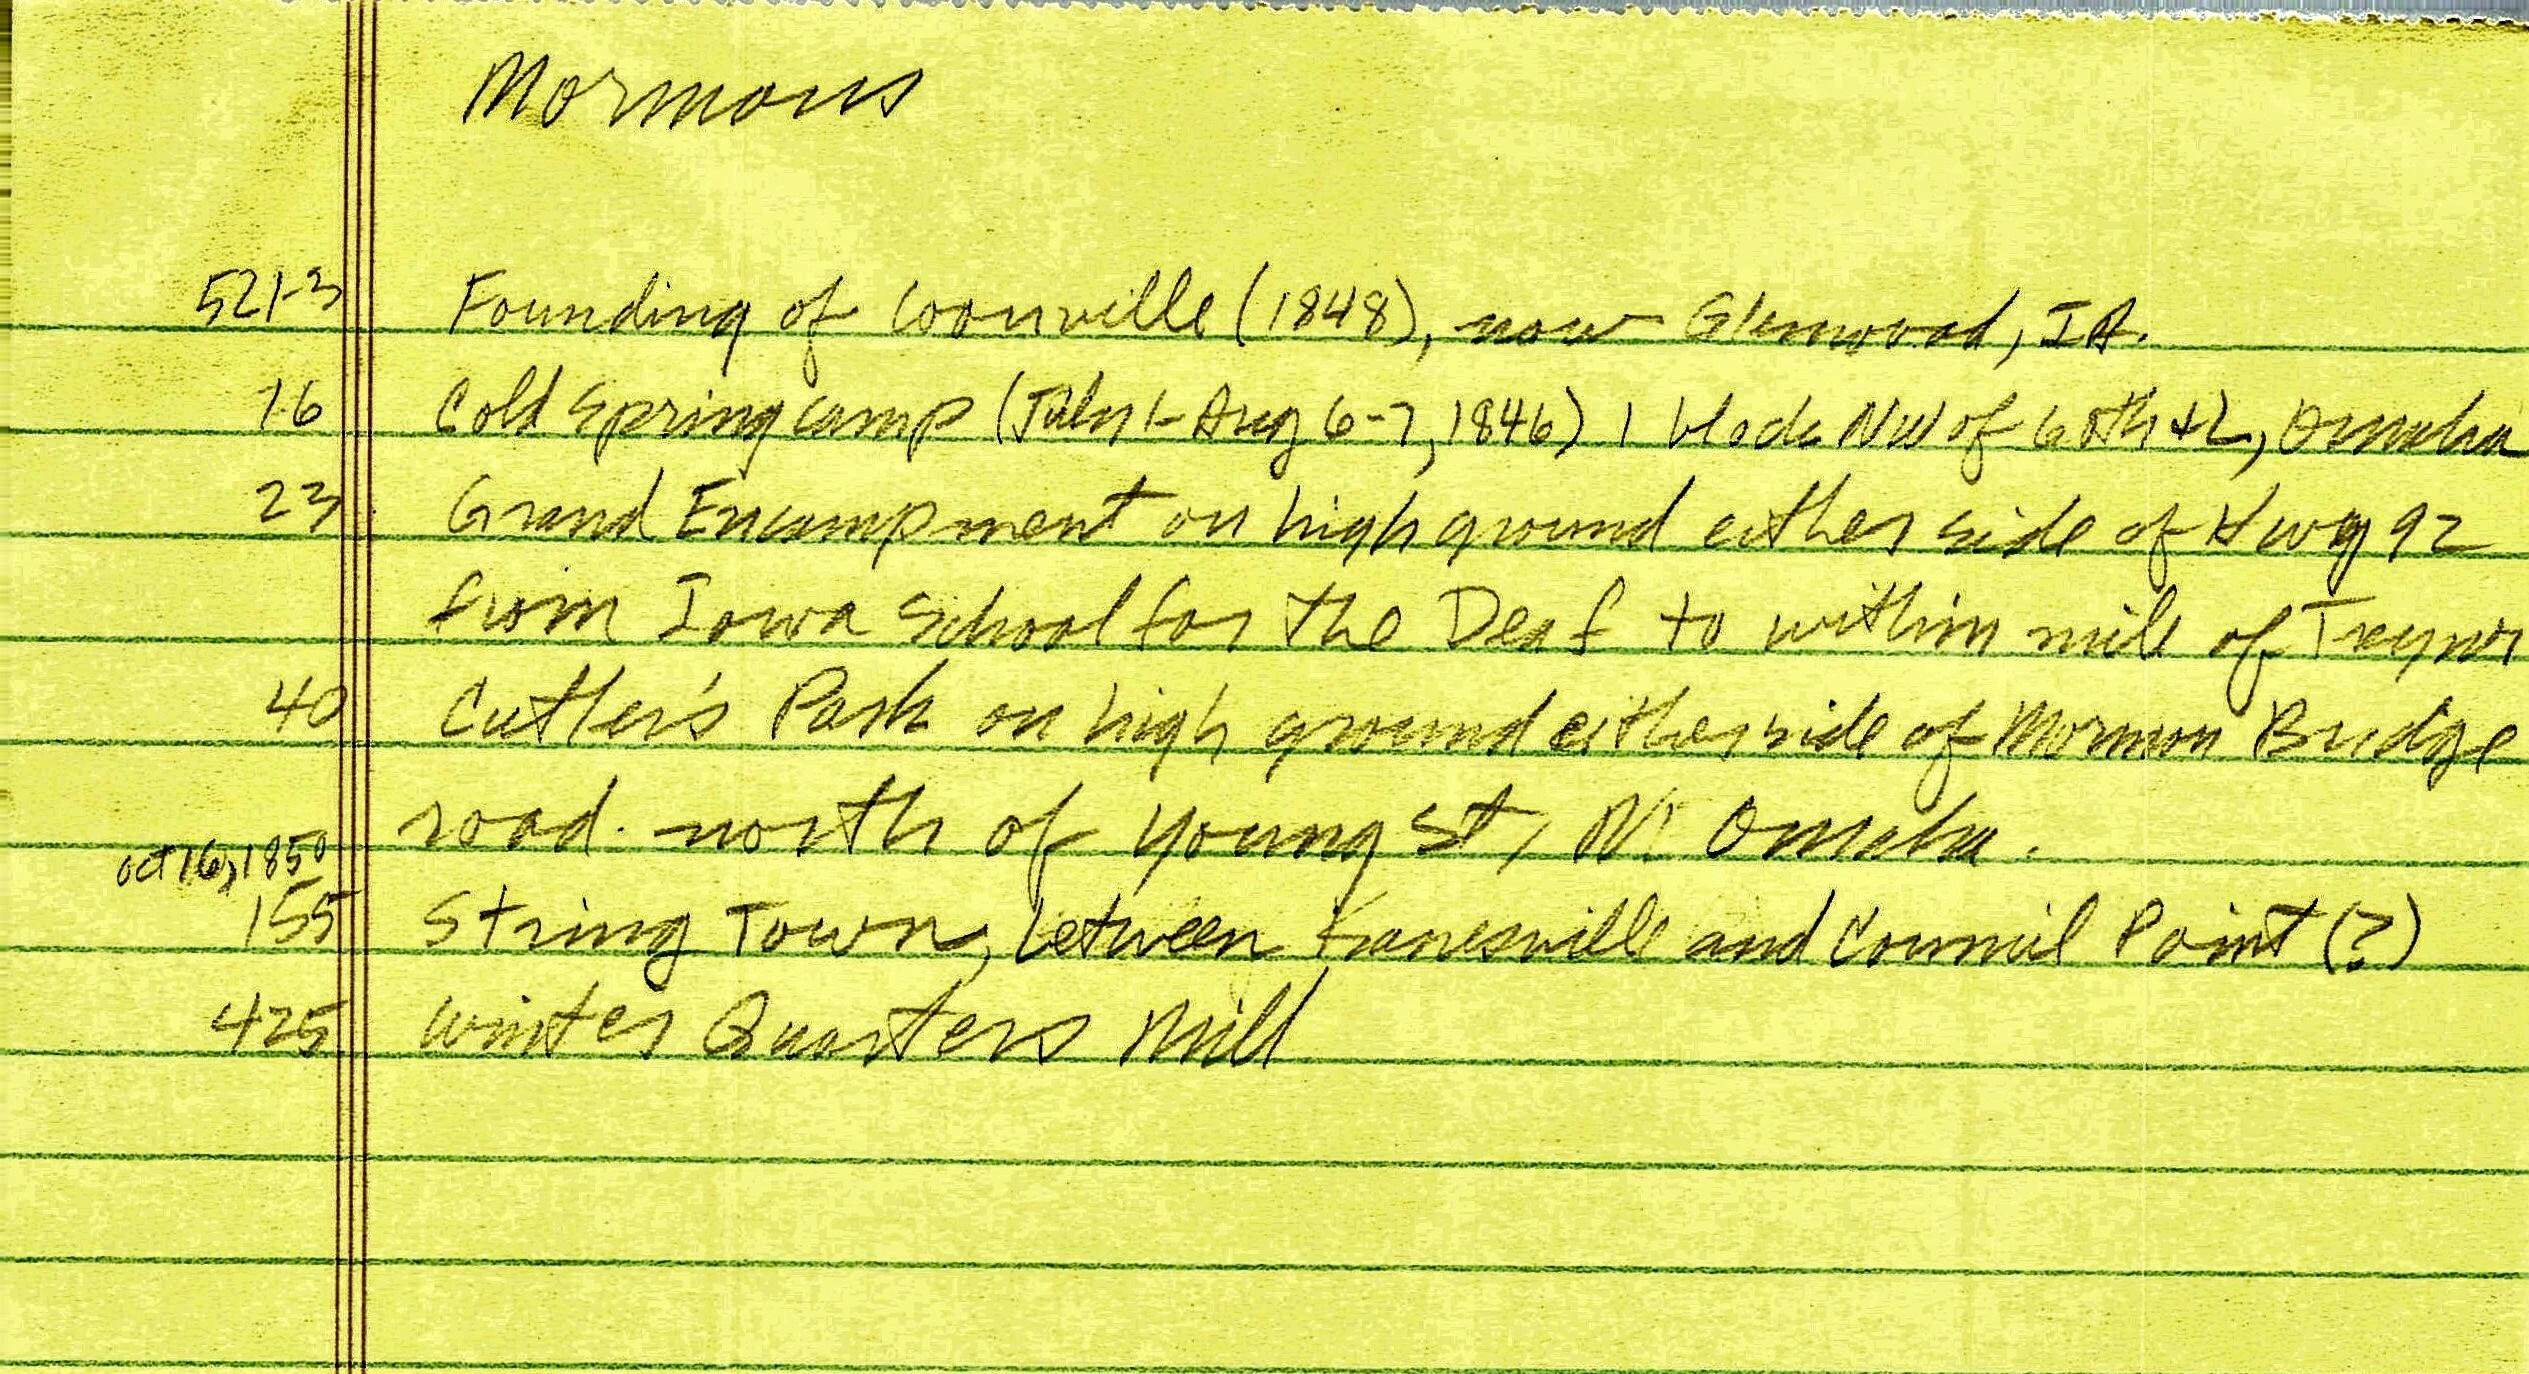 Mormons
521-3 Founding of Coonville (1848), now Glenwood, IA.
16 Cold Spring camp (July 1-Aug 6-7, 1846) 1 block NW of 60th + L, Omaha
23 Grand Encampment on high ground either side of Hwy 92
from Iowa School for the Deaf to within mile of Treynor
40 Cutler's Park on high ground either side of Mormon Bridge
road. north of Young St, N. Omaha.
Oct 16, 1850
155 String Town, between Kanesville and Council Point (?)
425 Winter Quarters Mill